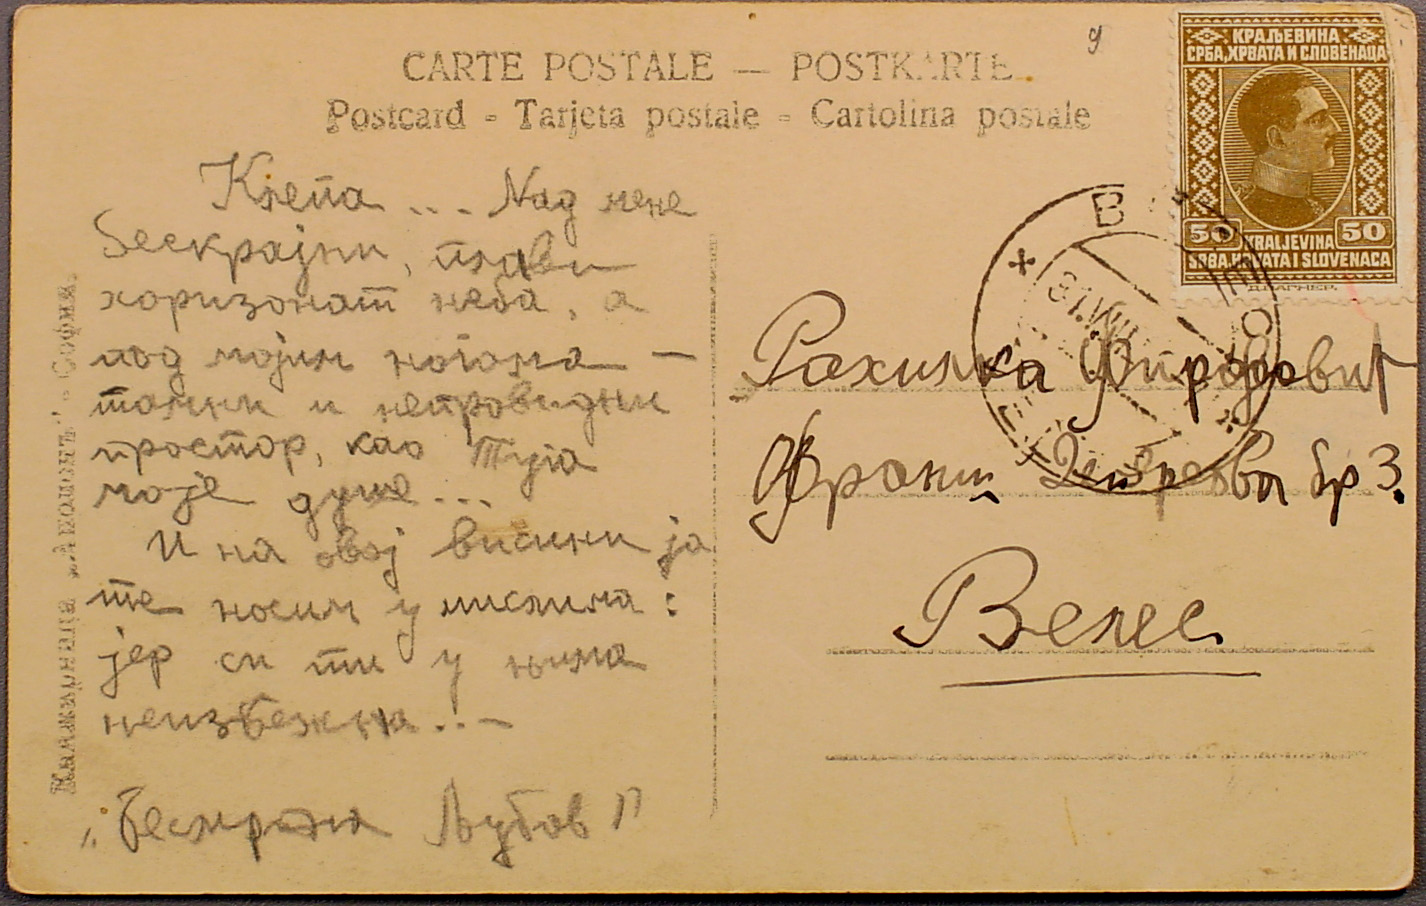 CARTE POSTALE — POSTKARTE
Postcard - Tarjeta postale - Cartolina postale
9
КРАЉЕВИНА
СРБА, ХРВАТА И СЛОВЕНАЦА
50 50
KRALJEVINA
SRBA, HRVATA I SLOVENACA
Д. ВАГНЕР.
31.VIII
Крепа ... Над мене
бескрајни, плави
хоризонат неба, а
под мојим ногома —
тамни и непровидни
простор, као туга
моје душе...
И на овој висини ја
те носим у мислима:
јер си ти у њима
неизбежна...
„Бесмртна Љубов"
Рахилка
Франш бр 3.
Велес
Книжарница „Аполонъ" - София.